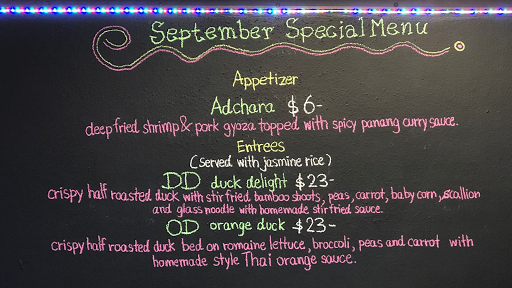 September Special Menu
Appetizer
Adchara $6-
deep fried shrimp & pork gyoza topped with spicy panang curry sauce.
Entrees
(Served with jasmine rice)
DD duck delight $23-
crispy half roasted duck with stir fried bamboo shoots, peas, carrot, baby corn, scallion
and glass noodle with homemade stir fried sauce.
OD orange duck $23-
crispy half roasted duck bed on romaine lettuce, broccoli, peas and carrot with
homemade style Thai orange sauce.